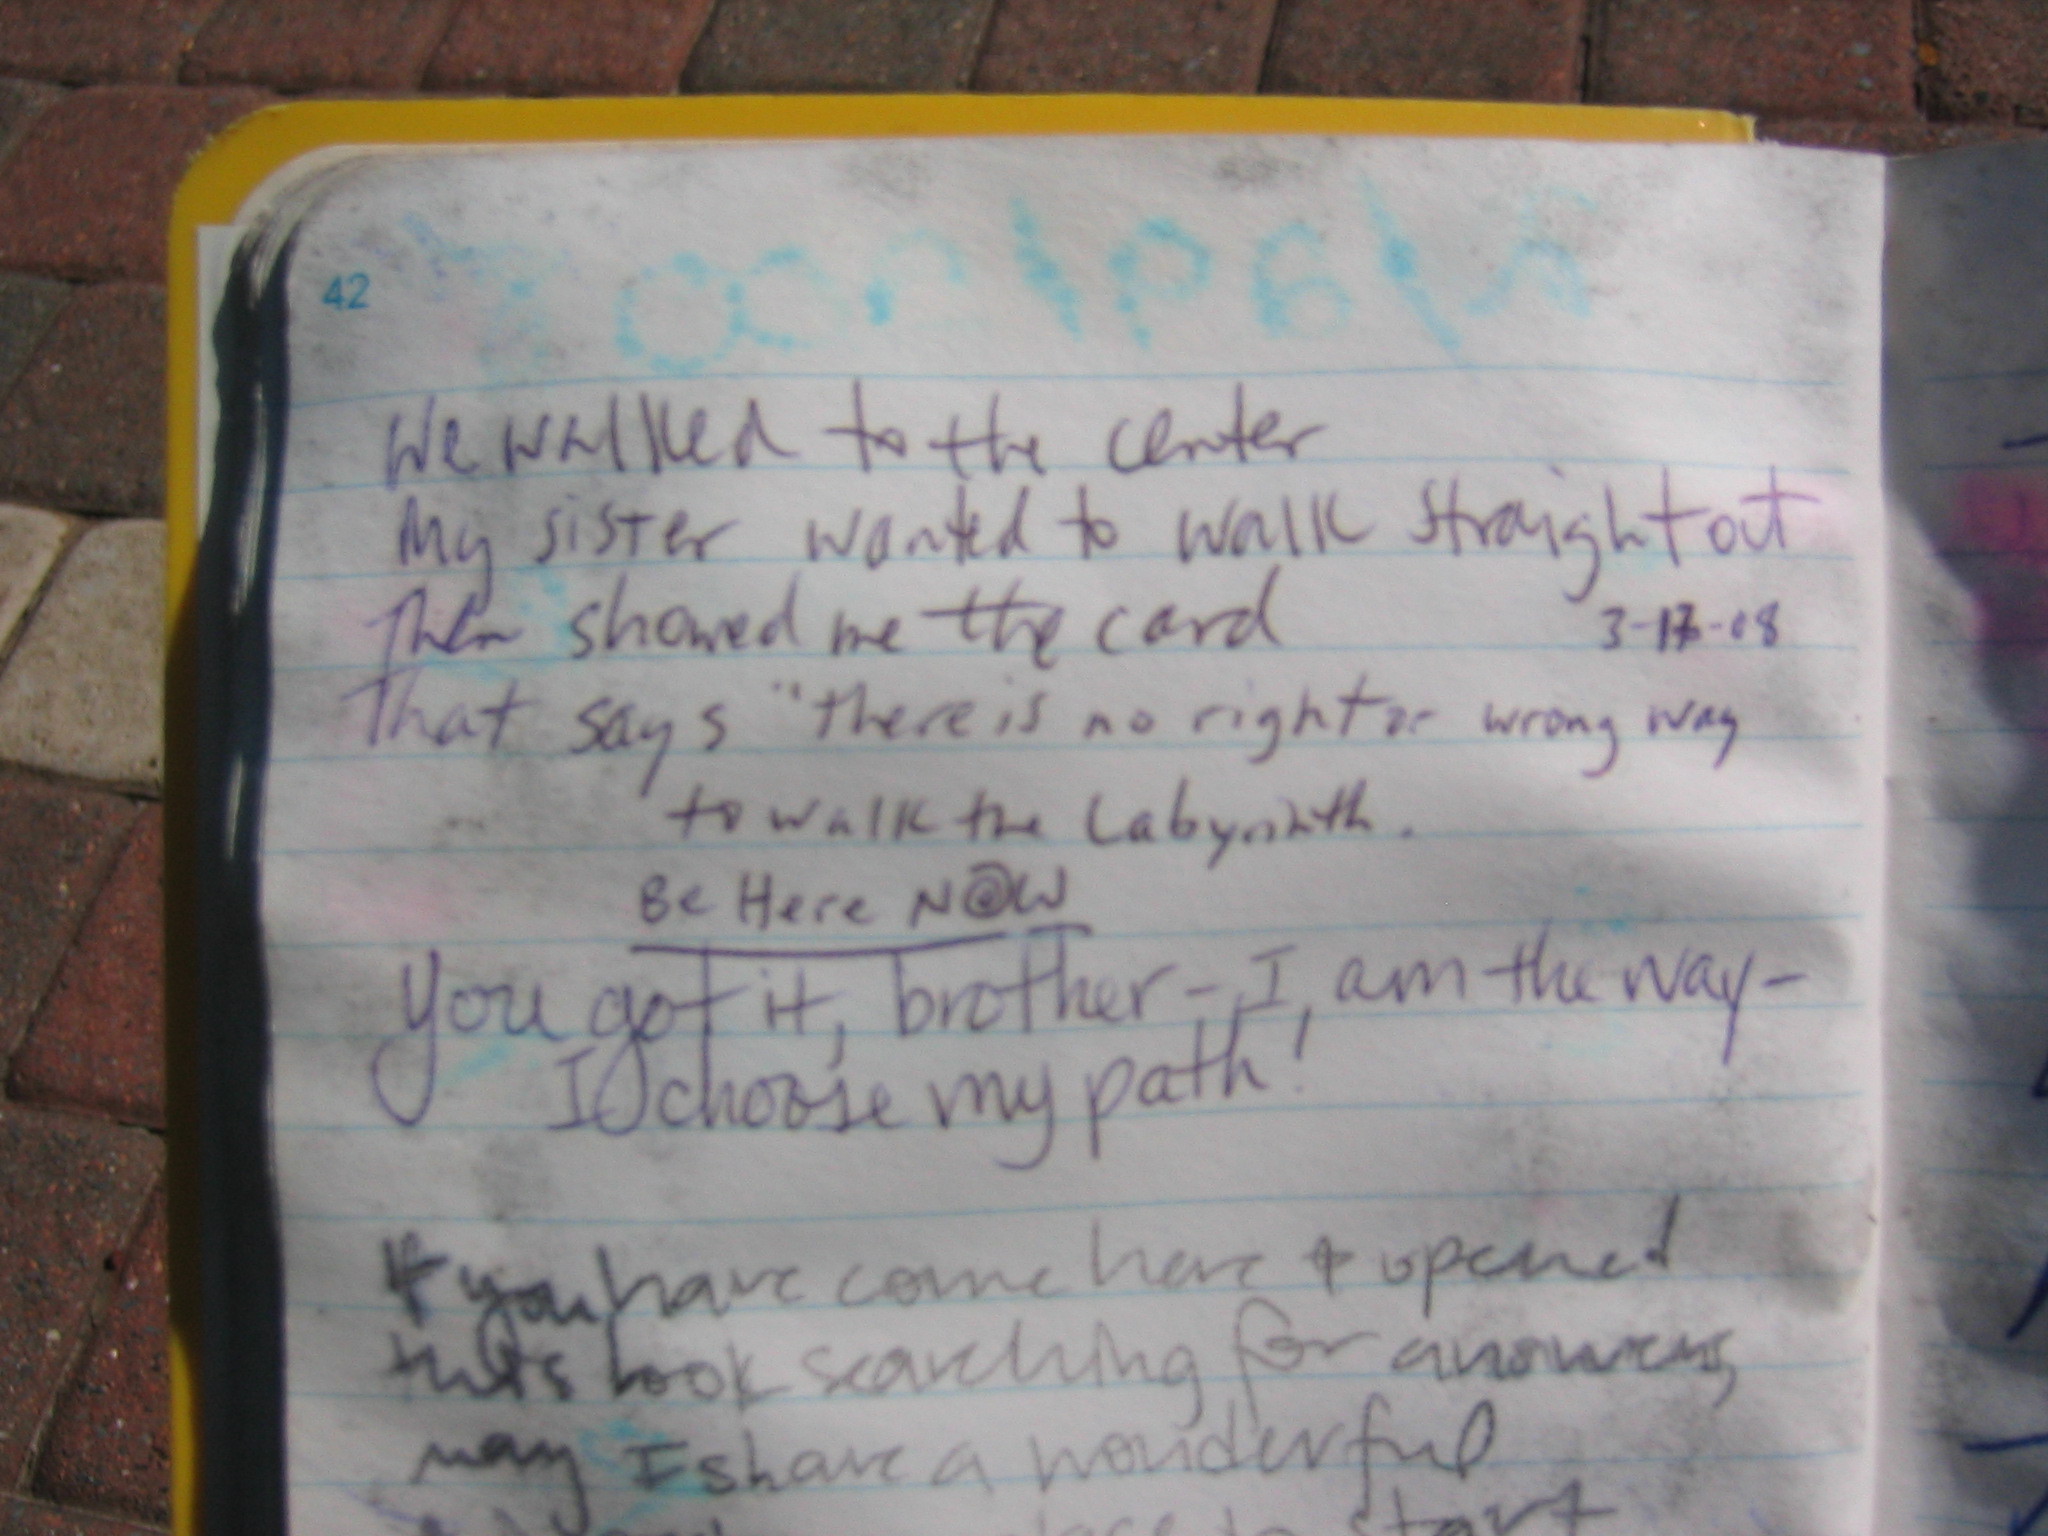 42
We walked to the center
My sister wanted to walk straight out
Then showed me the card
3-17-08
That says "there is no right or wrong way
to walk the Labyrinth.
Be Here N@W
You got it, brother - I am the way -
I choose my path!
If you have come here & opened
this book searching for answers,
may I share a wonderful
place to start